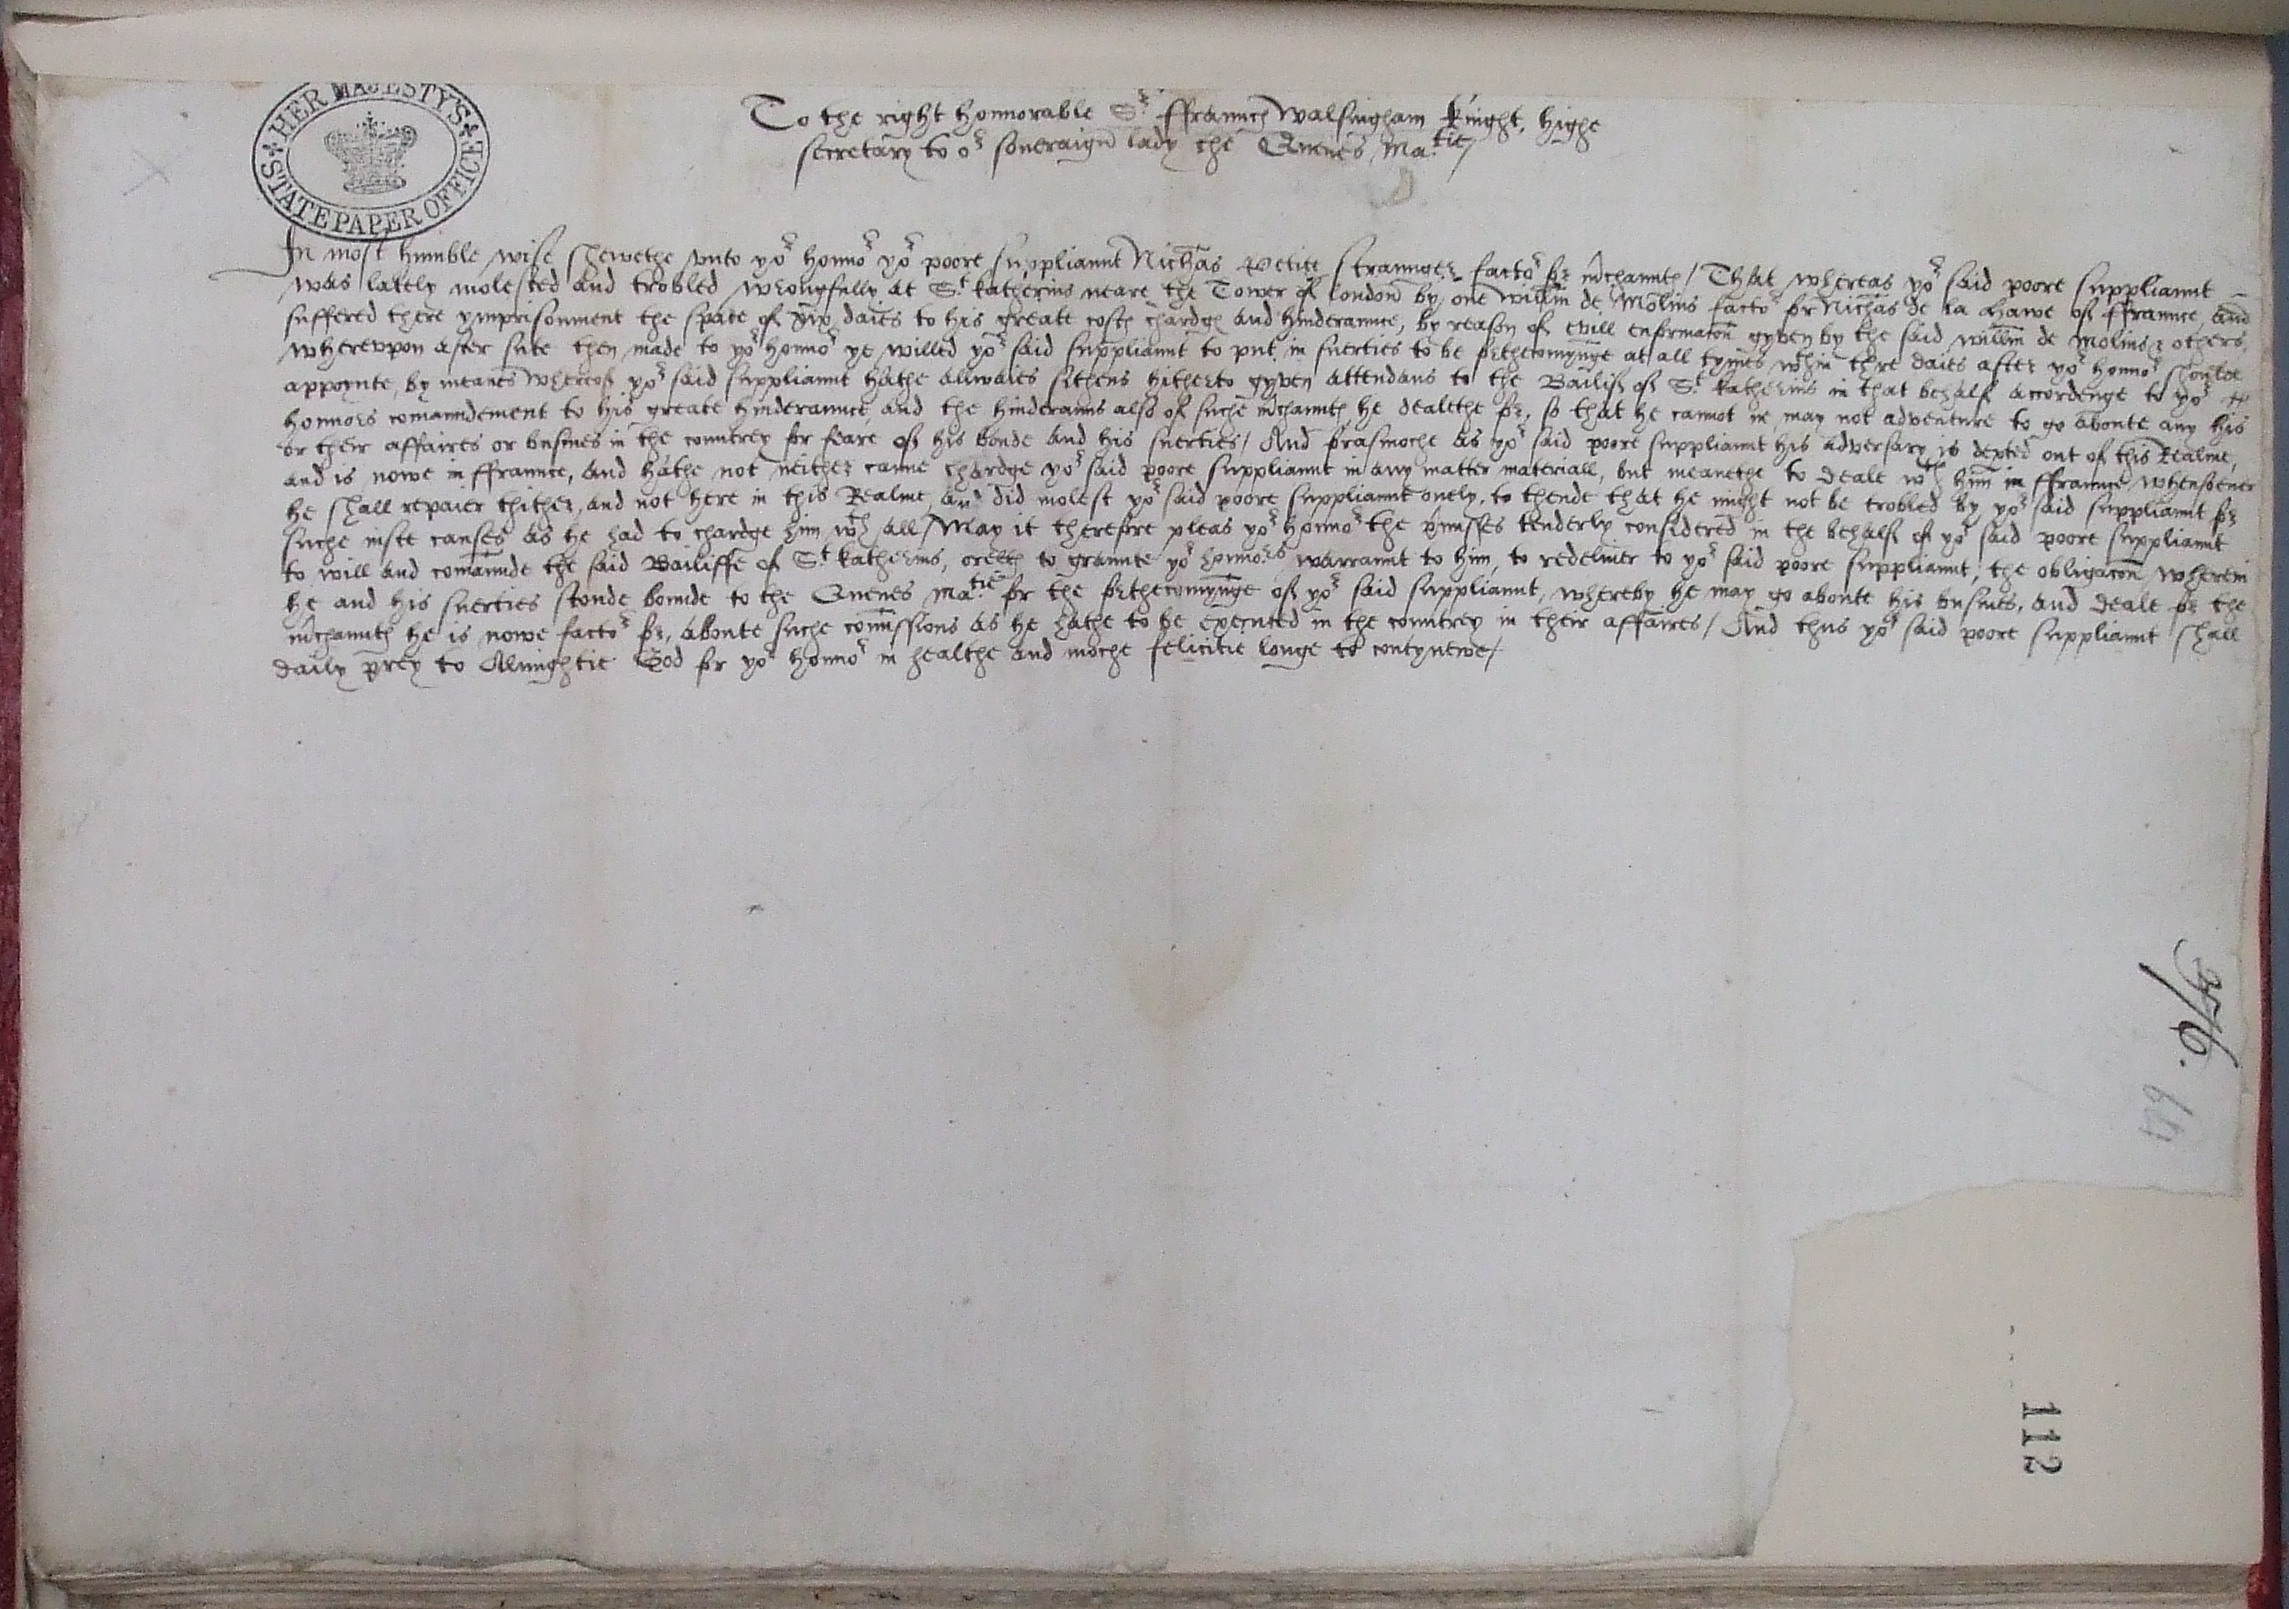 HER MAJESTY'S
STATE PAPER OFFICE
To the right honnorable Sr ffrauncs Walsingham knight, highe
secretary to or soueraigne lady the Quenes Matie/
In most humble wise shewethe vnto yor honnor yor poore suppliaunt Nichas Petite straunger factor for mchaunts / That whereas yor said poore suppliaunt
was lately molested and trobled wrongfully at St katherins neare the Tower of london by one Willm de Molins factor for Nichas de la Hawe of ffraunce, and
suffered there ymprisonment the space of daies to his greate costs chardgs and hinderaunce, by reason of evill enformacon gyven by the said Willm de Molins & others,
wherevpon after sute then made to yor honnor ye willed yor said suppliaunt to put in suerties to be forthecomynge at all tymes wthin thre daies after yor honnor shoulde
appoynte, by meanes whereof yor said suppliaunt hathe allwaies sithens hitherto gyven attendans to the Bailif of St katherins in that behalf accordenge to yor
honnors comaundement to his greate hinderaunce, and the hinderauns also of suche mchaunts he dealethe for, so that he cannot ne may not adventure to go aboute any his
or their affaires or busines in the countrey for feare of his bonde and his suerties / And forasmoche as yor said poore suppliaunt his adversary is depted out of this Realme,
and is nowe in ffraunce, and hathe not neither canne chardge yor said poore suppliaunt in any matter materiall, but meanethe to deale wth him in ffraunce whensoeuer
he shall repaier thither, and not here in this Realme, and did molest yor said poore suppliaunt onely, to thende that he might not be trobled by yor said suppliaunt for
suche iuste causes as he had to chardge him wth all / May it therefore pleas yor honnor the pmisses tenderly considered in the behalf of yor said poore suppliaunt
to will and comaunde the said Bailiffe of St katherins, orells to graunte yor honnors warraunt to him, to redeliuer to yor said poore suppliaunt, the obligacon wherein
he and his suerties stonde bounde to the Quenes Matie for the forthecomynge of yor said suppliaunt, whereby he may go aboute his busines, and deale for the
mchaunts he is nowe factor for, aboute suche comissions as he hathe to be executed in the countrey in their affaires / And thus yor said poore suppliaunt shall
daily prey to Almightie God for yor honnor in healthe and moche felicitie longe to contynewe /
112